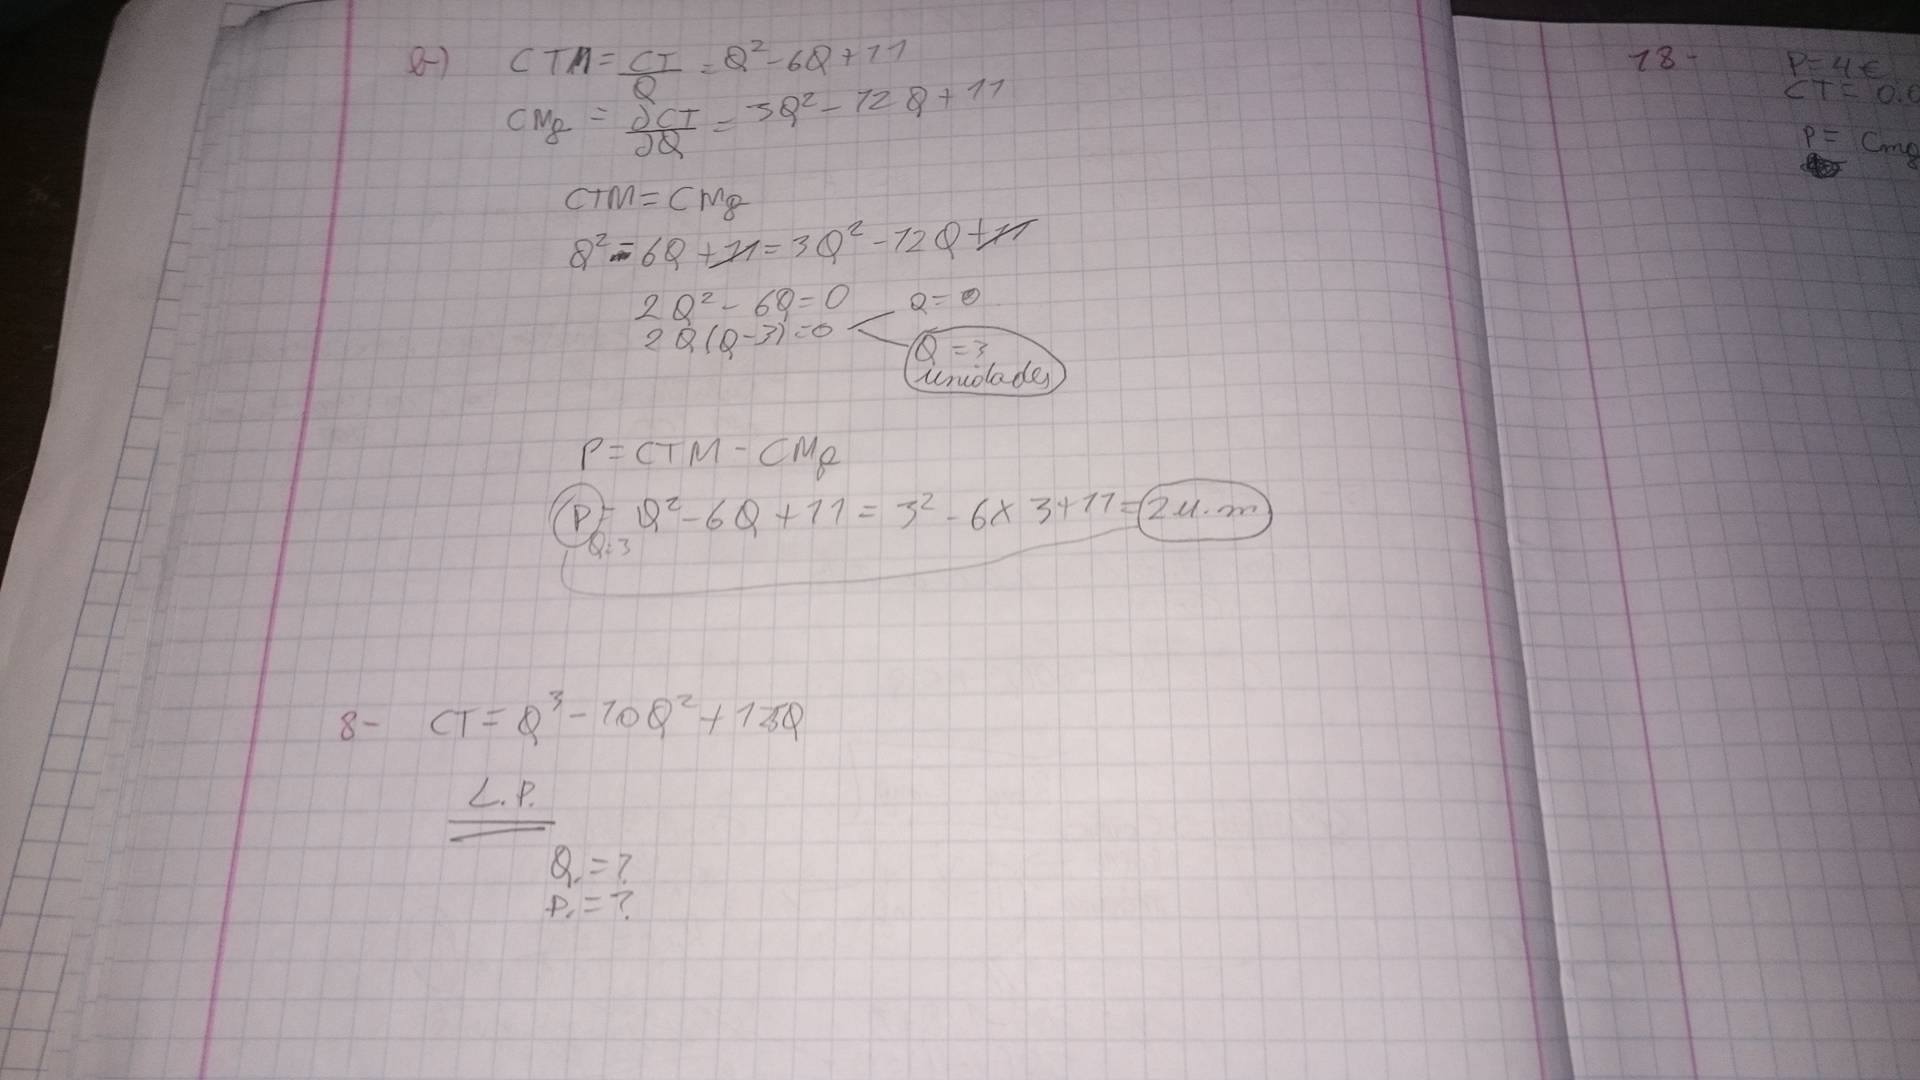 b-) CTM = CT/Q = Q² - 6Q + 11
CMg = ∂CT/∂Q = 3Q² - 12Q + 11
CTM = CMg
Q² - 6Q + 11 = 3Q² - 12Q + 11
2Q² - 6Q = 0
2Q(Q-3) = 0
Q = 0
Q = 3
unidades
P = CTM - CMg
P = Q² - 6Q + 11 = 3² - 6 x 3 + 11 = 2 u.m
Q=3
8- CT = Q³ - 10Q² +
L.P.
Q. = ?
P. = ?
18- P = 4€
CT = 0.0
P = Cmg